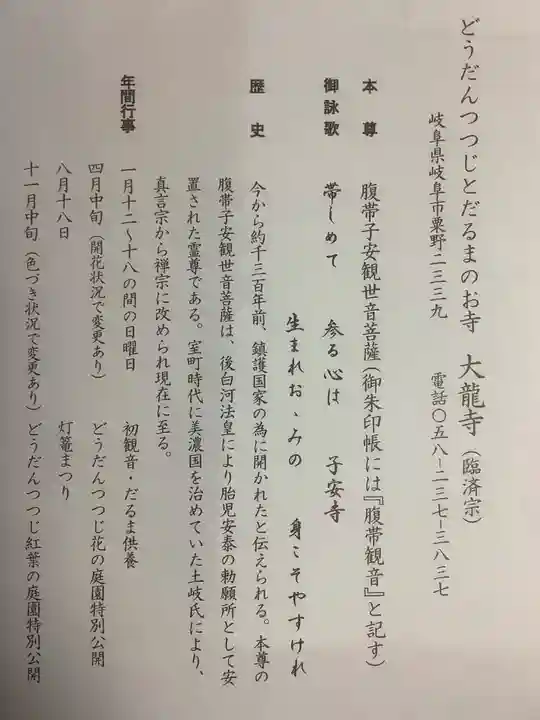 どうだんつつじとだるまのお寺　大龍寺（臨済宗）
岐阜県岐阜市粟野二三三九　電話〇五八－二三七－三八三七
本尊　腹帯子安観世音菩薩（御朱印帳には『腹帯観音』と記す）
御詠歌　帯しめて　参る心は　子安寺
生まれおゝみの　身こそやすけれ
歴史　今から約千三百年前、鎮護国家の為に開かれたと伝えられる。本尊の
腹帯子安観世音菩薩は、後白河法皇により胎児安泰の勅願所として安
置された霊尊である。室町時代に美濃国を治めていた土岐氏により、
真言宗から禅宗に改められ現在に至る。
年間行事　一月十二～十八の間の日曜日　初観音・だるま供養
四月中旬（開花状況で変更あり）　どうだんつつじ花の庭園特別公開
八月十八日　灯篭まつり
十一月中旬（色づき状況で変更あり）　どうだんつつじ紅葉の庭園特別公開